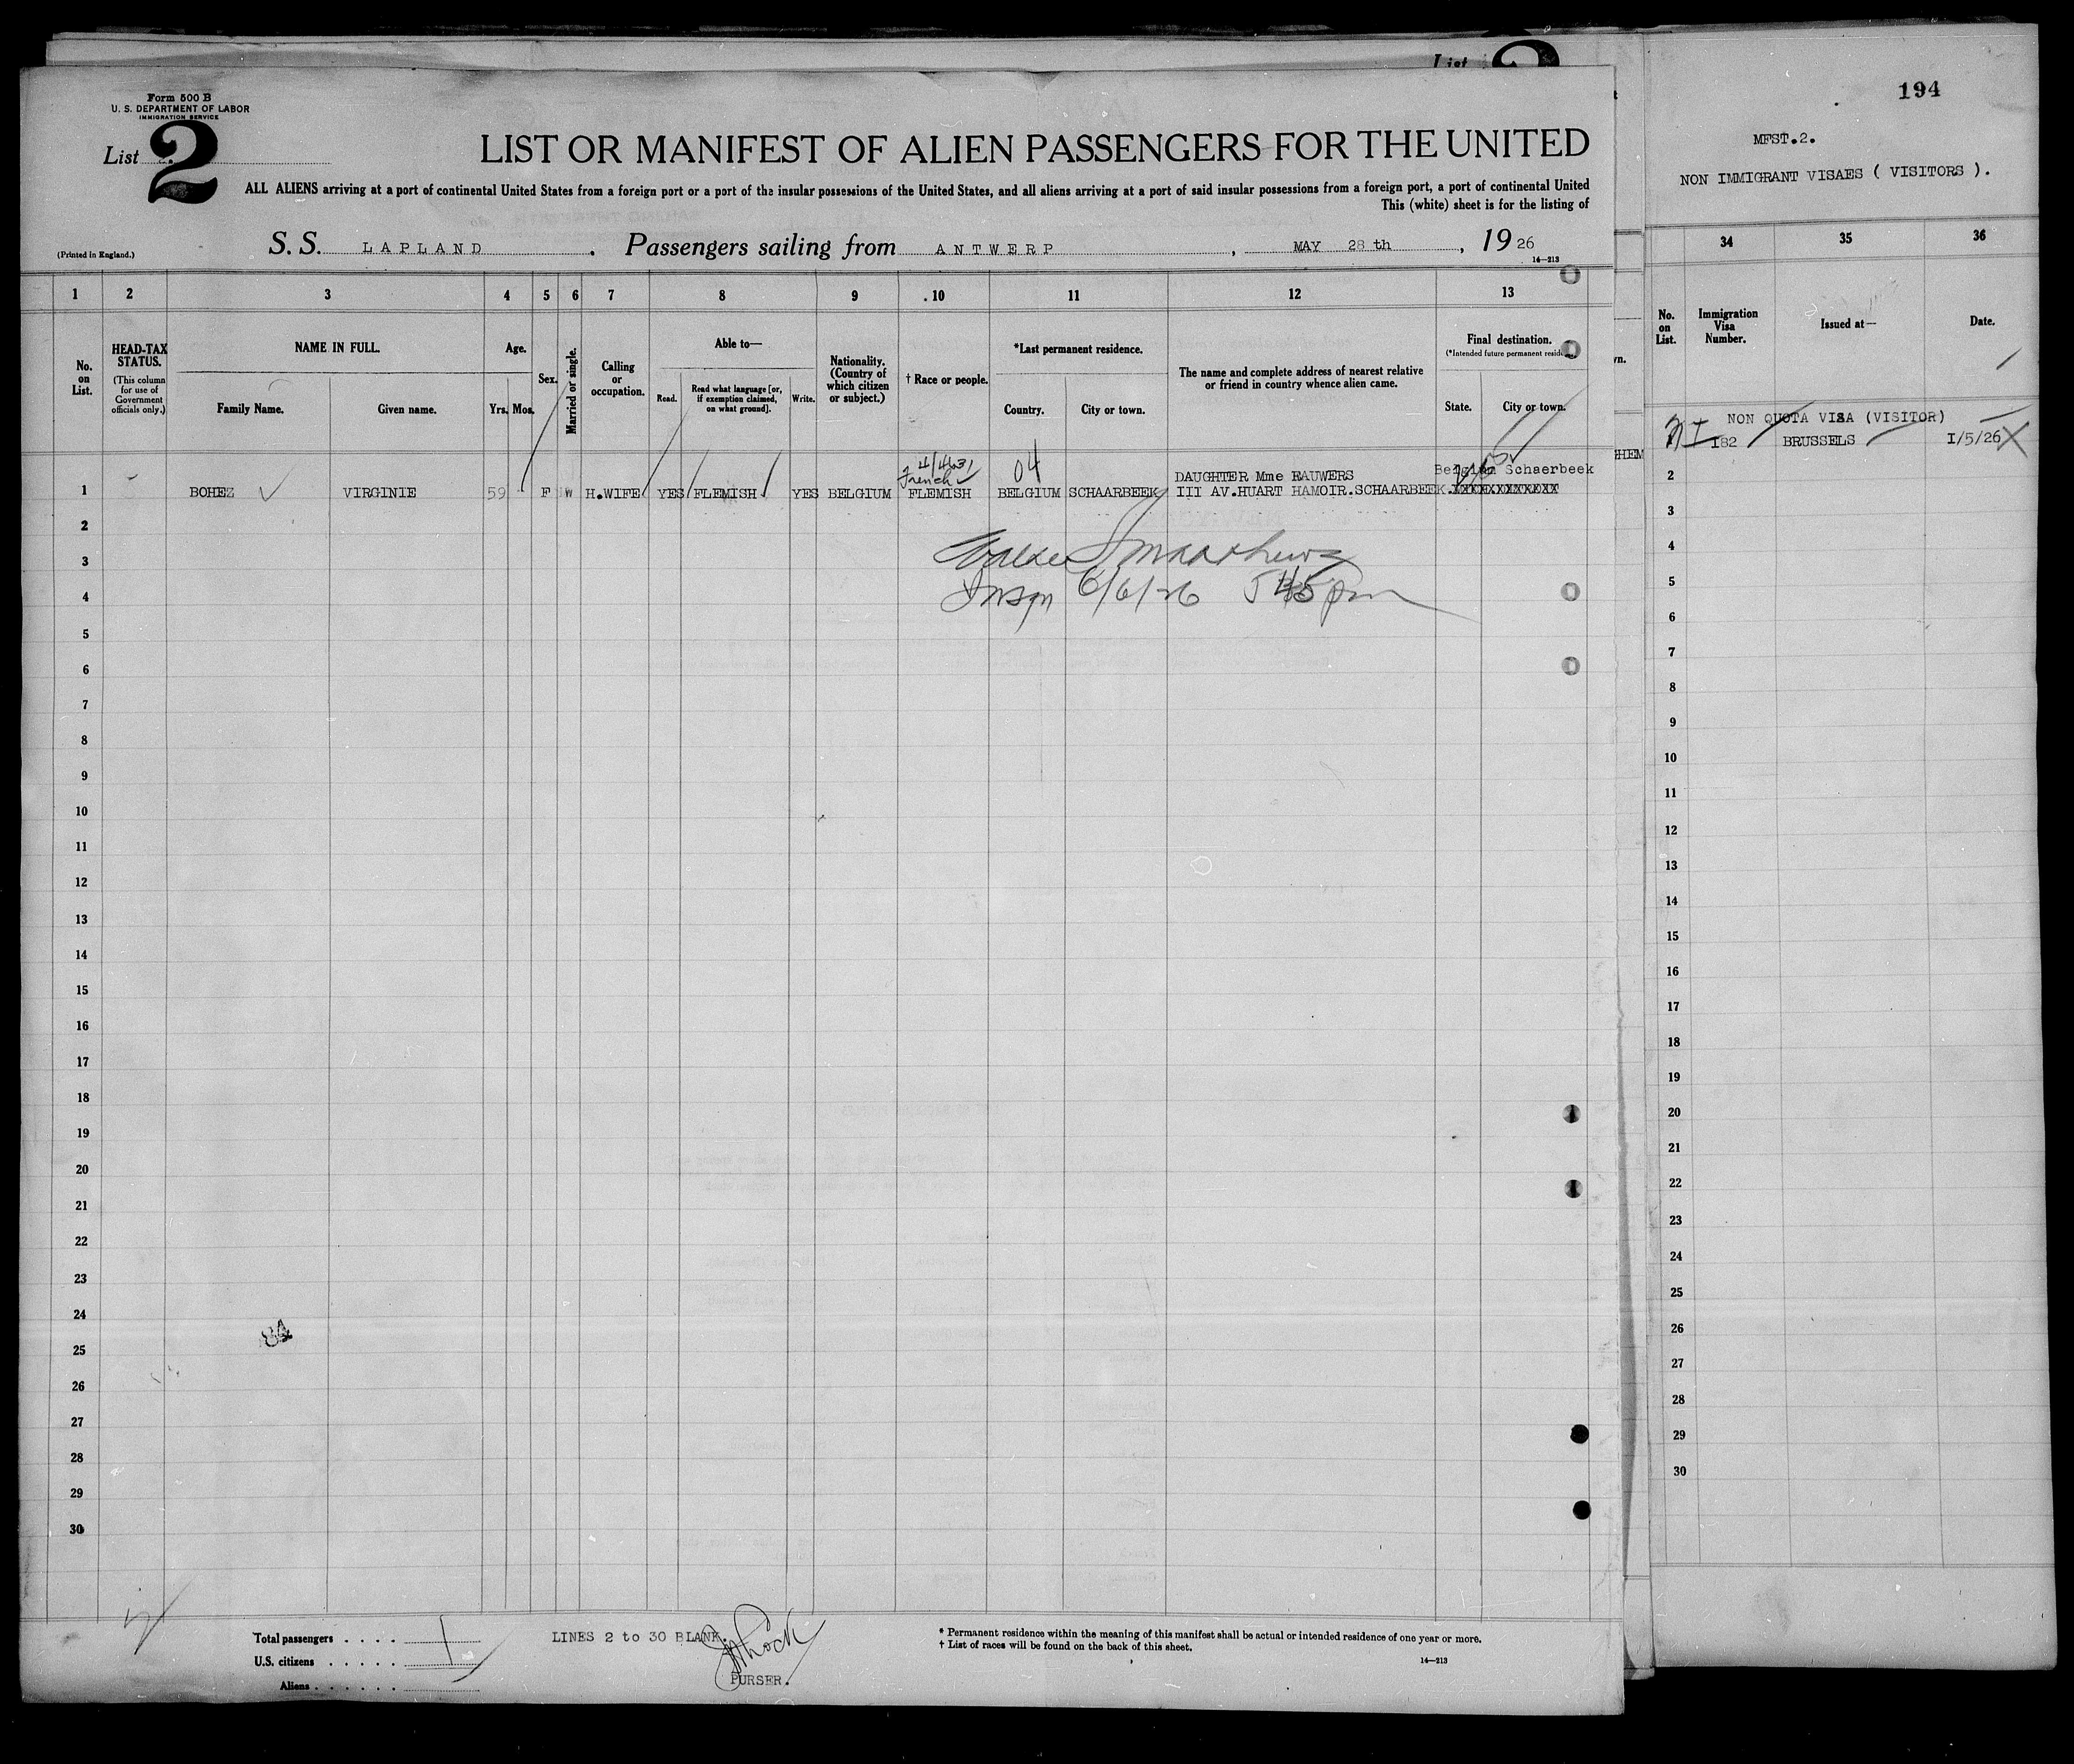 List
194
MFST.2.
NON IMMIGRANT VISAES ( VISITORS ).
Form 500 B
U. S. DEPARTMENT OF LABOR
IMMIGRATION SERVICE
List 2
LIST OR MANIFEST OF ALIEN PASSENGERS FOR THE UNITED
ALL ALIENS arriving at a port of continental United States from a foreign port or a port of the insular possessions of the United States, and all aliens arriving at a port of said insular possessions from a foreign port, a port of continental United
This (white) sheet is for the listing of
(Printed in England.)
S. S. LAPLAND. Passengers sailing from ANTWERP, MAY 28 th, 19 26
14—213
1 2 3 4 5 6 7 8 9 10 11 12 13
No. on List.
HEAD-TAX STATUS.
(This column for use of Government officials only.)
NAME IN FULL.
Family Name. Given name.
Age.
Yrs. Mos.
Sex.
Married or single.
Calling or occupation.
Able to—
Read. Read what language [or, if exemption claimed, on what ground]. Write.
Nationality. (Country of which citizen or subject.)
† Race or people.
*Last permanent residence.
Country. City or town.
The name and complete address of nearest relative or friend in country whence alien came.
Final destination.
(*Intended future permanent
State. City or town.
34 35 36
No. on List.
Immigration Visa Number.
Issued at—
Date.
NON QUOTA VISA (VISITOR)
NI 182 BRUSSELS I/5/26
French 04 DAUGHTER Mme RAUWERS Belgium Schaerbeek
1 BOHEZ VIRGINIE 59 - F W H.WIFE YES FLEMISH YES BELGIUM FLEMISH BELGIUM SCHAARBEEK III AV.HUART HAMOIR.SCHAARBEEK.
Matthews
Insp 6/6/26 5 45 pm
2
3
4
5
6
7
8
9
10
11
12
13
14
15
16
17
18
19
20
21
22
23
24
25
26
27
28
29
30
2
3
4
5
6
7
8
9
10
11
12
13
14
15
16
17
18
19
20
21
22
23
24
25
26
27
28
29
30
84
Total passengers . . . . 1
U.S. citizens . . . . .
Aliens . . . . . .
LINES 2 to 30 BLANK.
PURSER.
* Permanent residence within the meaning of this manifest shall be actual or intended residence of one year or more.
† List of races will be found on the back of this sheet.
14—213